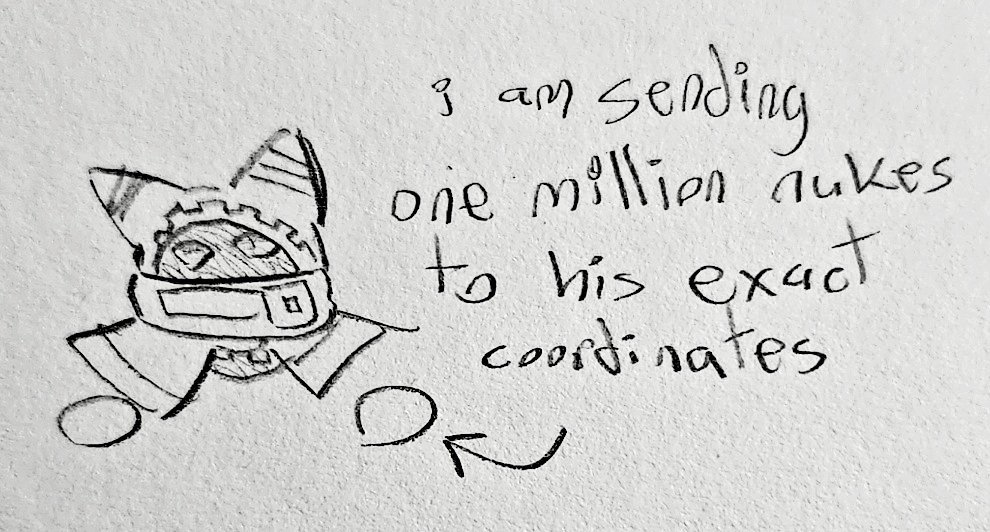 i am sending
one million nukes
to his exact
coordinates